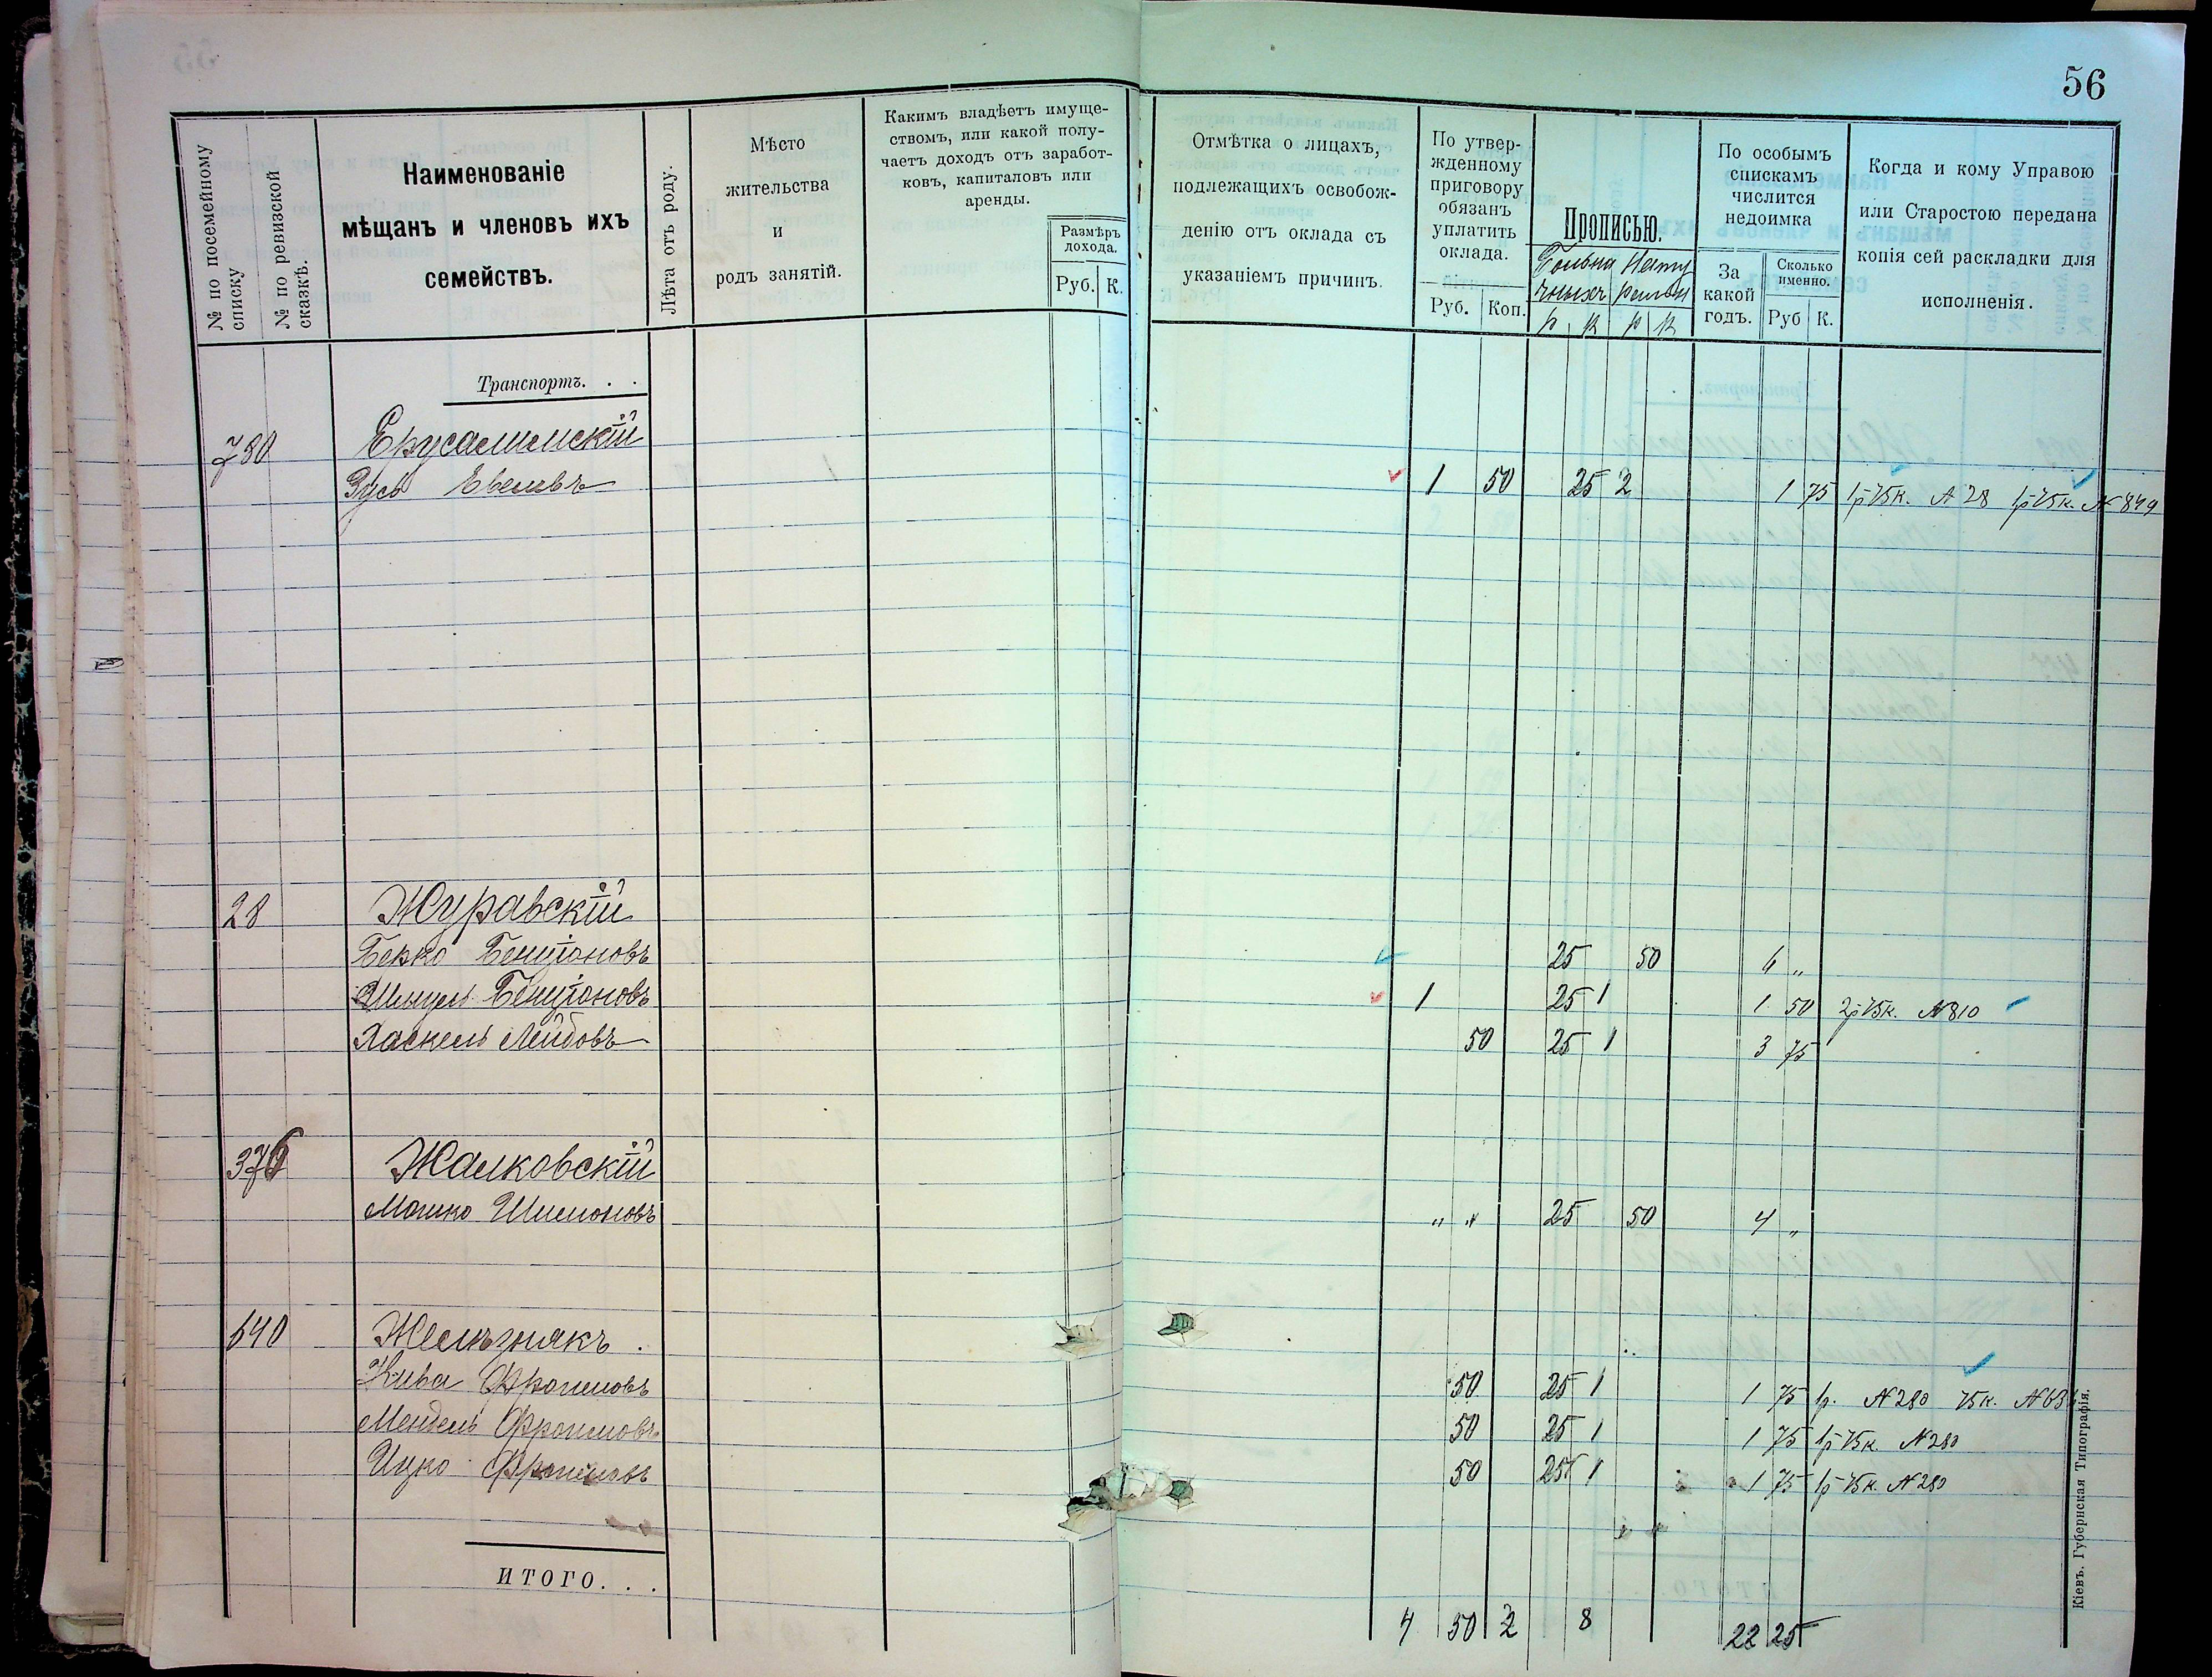 56
№ по посемейному списку
№ по ревизской сказкѣ.
Наименованіе
мѣщанъ и членовъ ихъ
семействъ.
Лѣта отъ роду.
Мѣсто
жительства
и
родъ занятій.
Какимъ владѣетъ имуще-
ствомъ, или какой полу-
чаетъ доходъ отъ заработ-
ковъ, капиталовъ или
аренды.
Размѣръ
дохода.
Руб. К.
Отмѣтка о лицахъ,
подлежащихъ освобож-
денію отъ оклада съ
указаніемъ причинъ.
По утвер-
жденному
приговору
обязанъ
уплатить
оклада.
Руб. Коп.
Прописью.
р к р к
По особымъ
спискамъ
числится
недоимка
За
какой
годъ.
Сколько
именно.
Руб К.
Когда и кому Управою
или Старостою передана
копія сей раскладки для
исполненія.
Транспортъ. . .
730 Ерусалимскій
Зусь Евелевъ 1 50 25 2 1 75 1р 75к. № 28 1р 75к. № 849
28 Журавскій
Берко Бенціоновъ 25 50 6 „
Шмуль Бенціоновъ 1 25 1 1 50 2р 75к. № 810
Хаскель Лейбовъ 50 25 1 3 75
376 Жалковскій
Мошко Шимоновъ „ „ 25 50 4 „
640 Желѣзнякъ
Кива Фроимовъ 50 25 1 1 75 1р. № 280 75к.
Мендель Фроимовъ 50 25 1 1 75 1р 75к. № 280
Ицко Фроимовъ 50 25 1 1 75 1р 75к. № 280
ИТОГО. . .
4 50 2 8 22 25
Кіевъ. Губернская Типографія.